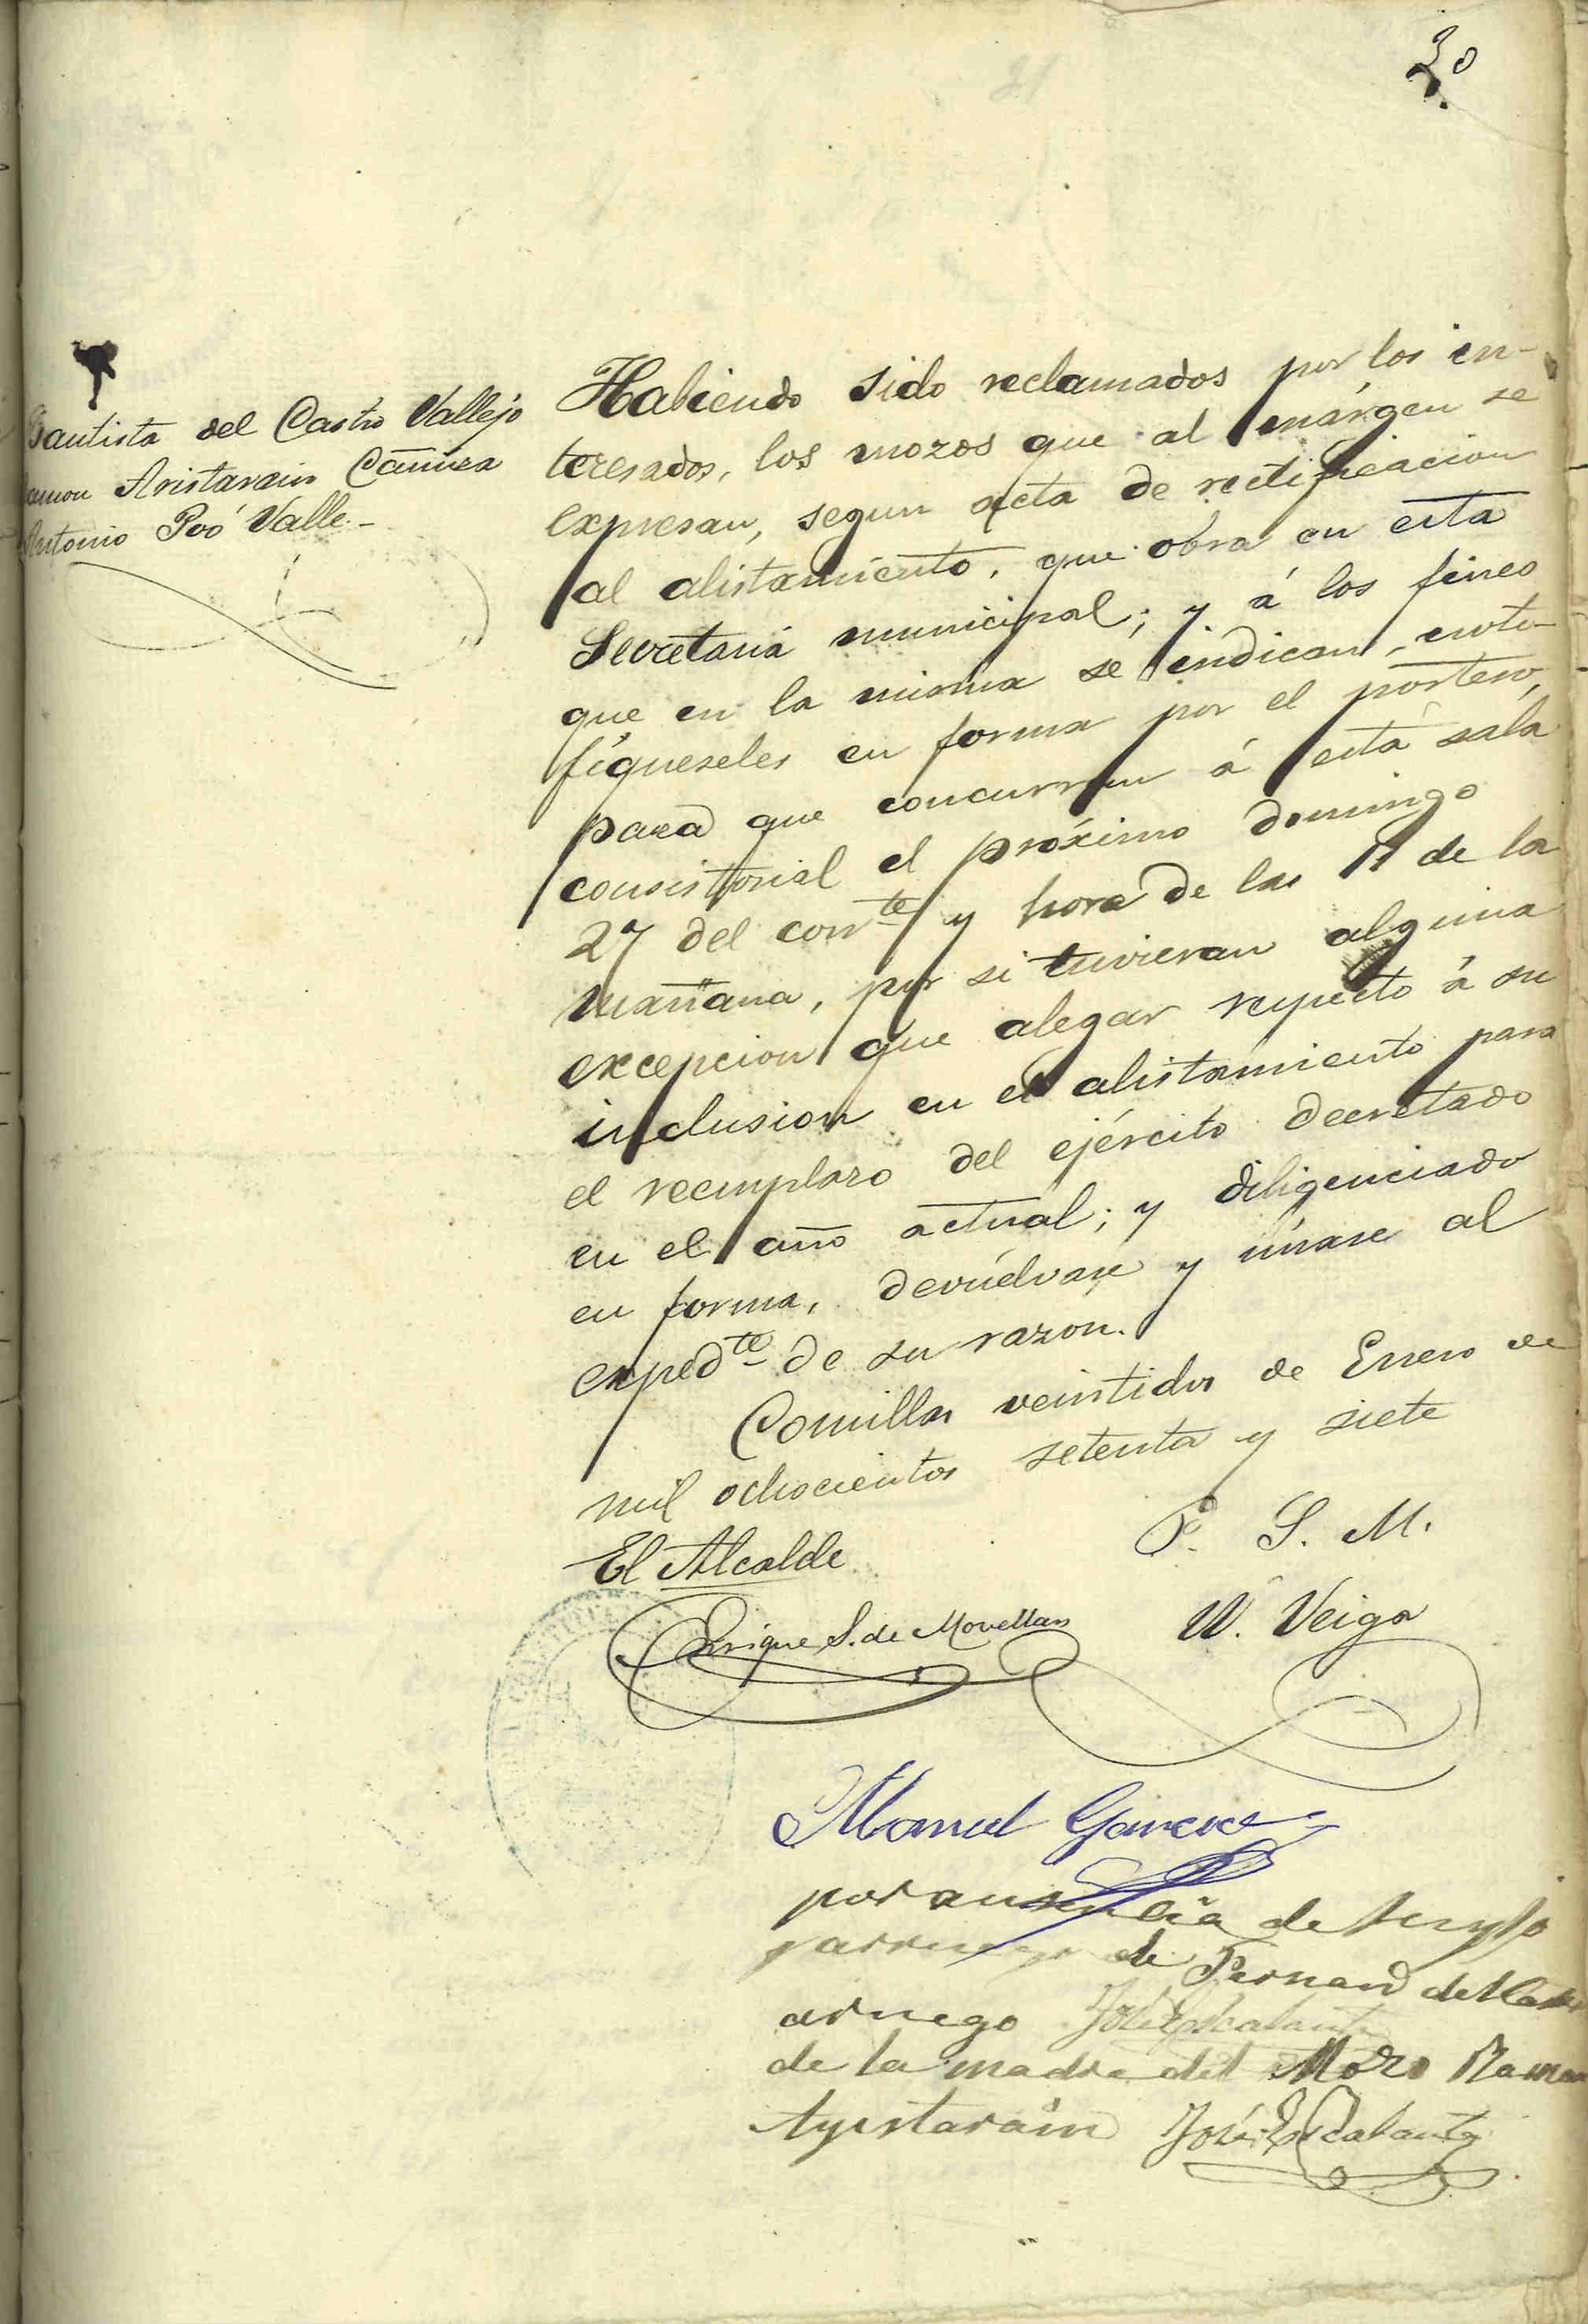 30
Bautista del Castro Vallejo
Ramon Aristarain Cámara
Antonio Poó Valle
Habiendo sido reclamados por los in-
teresados, los mozos que al márgen se
expresan, segun acta de rectificacion
al alistamiento, que obra en esta
Secretaría municipal; y á los fines
que en la misma se indican, noti-
fíqueseles en forma por el portero,
para que concurran á esta sala
consistorial el próximo domingo
27 del corrte y hora de las 11 de la
mañana, por si tuvieran alguna
excepcion que alegar respecto á su
inclusion en el alistamiento para
el reemplazo del ejército decretado
en el año actual; y diligenciado
en forma, devuélvase y únase al
expedte de su razon.
Comillas veintidos de Enero de
mil ochocientos setenta y siete
El Alcalde
P. S. M.
Enrique S. de Movellan
W. Veiga
Manuel
por ausencia de
de Fernand del
arruego José Escalante
de la madre del Mozo Ramon
Ayistarain José Escalante